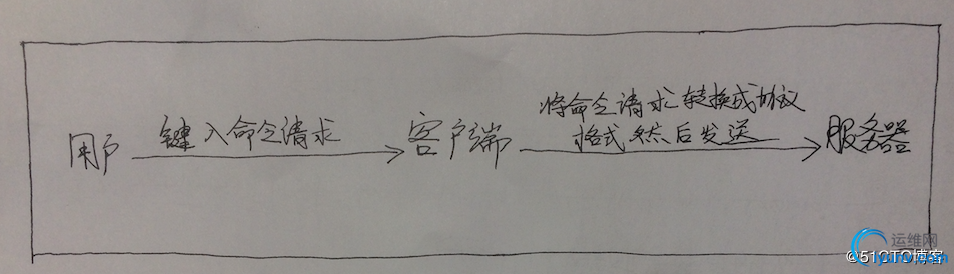 用户 键入命令请求 客户端 将命令请求转换成协议
格式然后发送 服务器
运维网
©51CTO博客